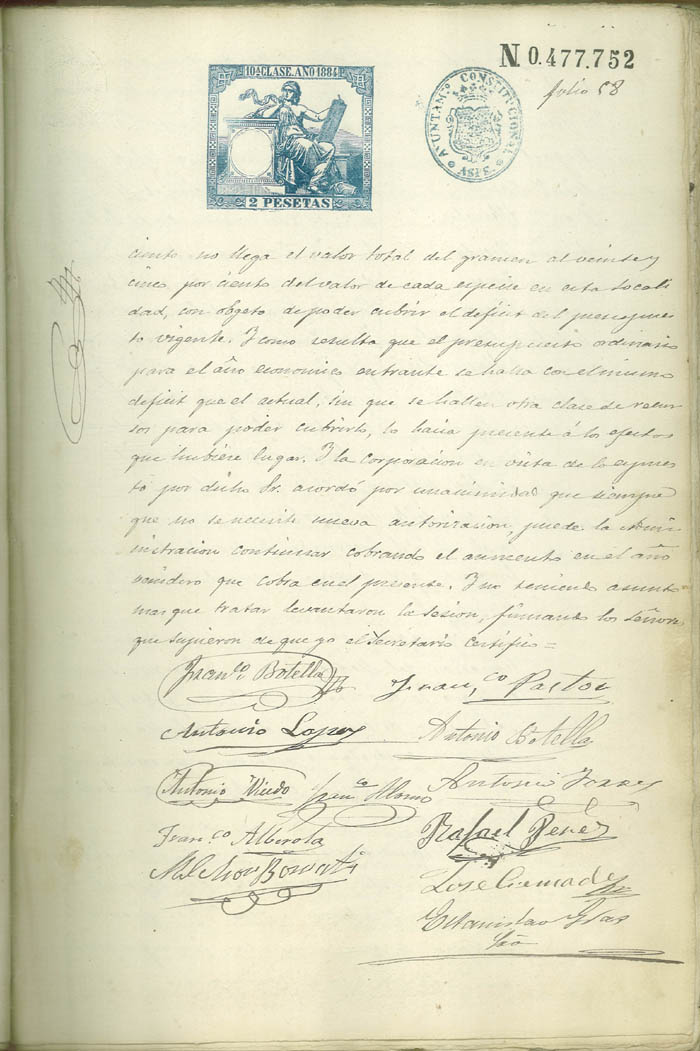 N 0.477.752
folio 58
10ª CLASE. AÑO 1884
2 PESETAS
AYUNTAMTO CONSTITUCIONAL
ASPE
ciento no llega el valor total del gramen al veinte y
cinco por ciento del valor de cada especie en esta locali
dad, con objeto de poder cubrir el deficit del presupues
to vigente. Y como resulta que el presupuesto ordinario
para el año economico entrante se halla con el mismo
deficit que el actual, sin que se hallen otra clase de recur
sos para poder cubrirlo, lo hacia presente á los efectos
que hubiere lugar. Y la corporacion en vista de lo espues
to por dicho Sr. acordó por unanimidad que siempre
que no se necesite nueva autorizacion, puede la Admi
nistracion continuar cobrando el aumento en el año
venidero que cobra en el presente. Y no teniendo asunto
mas que tratar levantaron la sesion, firmando los señores
que supieron de que yo el Secretario certifico =
Franco. Botella
Franco Pastor
Antonio Lopez
Antonio Botella
Antonio
Franco Alberola
Rafael Perez
Melchor
Jose Cremades
Estanislao
Srio